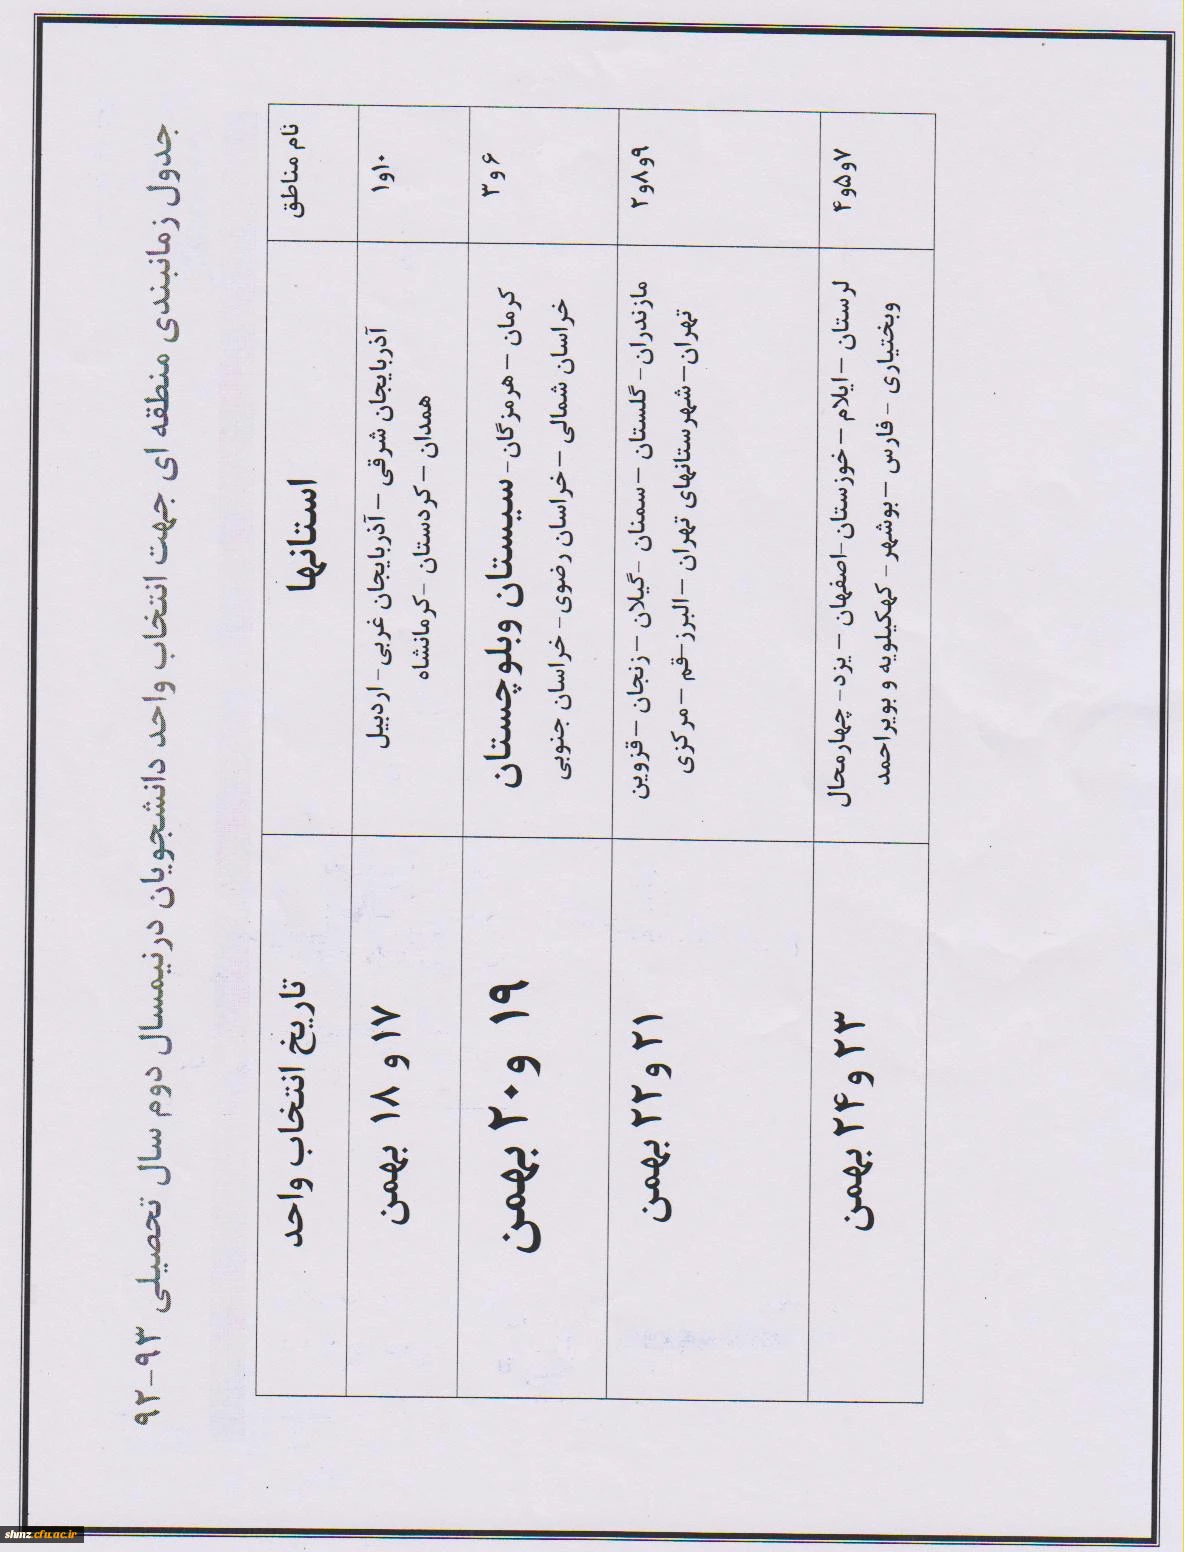 جدول زمانبندی منطقه ای جهت انتخاب واحد دانشجویان درنیمسال دوم سال تحصیلی ۹۳-۹۲
نام مناطق
استانها
تاریخ انتخاب واحد
۱۰و۱
آذربایجان شرقی – آذربایجان غربی- اردبیل
همدان – کردستان -کرمانشاه
۱۷ و ۱۸ بهمن
۶ و ۳
کرمان – هرمزگان- سیستان وبلوچستان
خراسان شمالی – خراسان رضوی- خراسان جنوبی
۱۹ و ۲۰ بهمن
۹و۸و۲
مازندران- گلستان – سمنان -گیلان – زنجان – قزوین
تهران– شهرستانهای تهران – البرز–قم – مرکزی
۲۱ و ۲۲ بهمن
۷و۵و۴
لرستان – ایلام – خوزستان-اصفهان – یزد- چهارمحال
وبختیاری - فارس – بوشهر- کهکیلویه و بویراحمد
۲۳ و ۲۴ بهمن
shmz.cfu.ac.ir